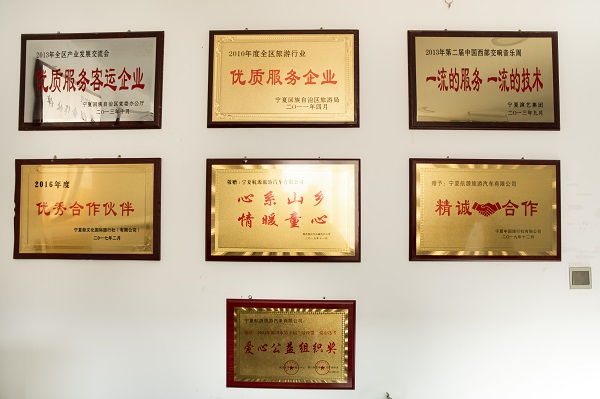 2013年全区产业发展交流会
优质服务客运企业
宁夏回族自治区党委办公厅
二〇一三年十月
2010年度全区旅游行业
优质服务企业
宁夏回族自治区旅游局
二〇一一年四月
2013年第二届中国西部交响音乐周
一流的服务 一流的技术
宁夏演艺集团
二〇一三年九月
2016年度
优秀合作伙伴
二〇一七年二月
敬赠：宁夏航源旅游汽车有限公司
心系山乡
情暖童心
赠予：宁夏航源旅游汽车有限公司
精诚 合作
宁夏中国旅行社有限公司
二〇一九年十二月
宁夏航源旅游汽车有限公司：
爱心公益组织奖